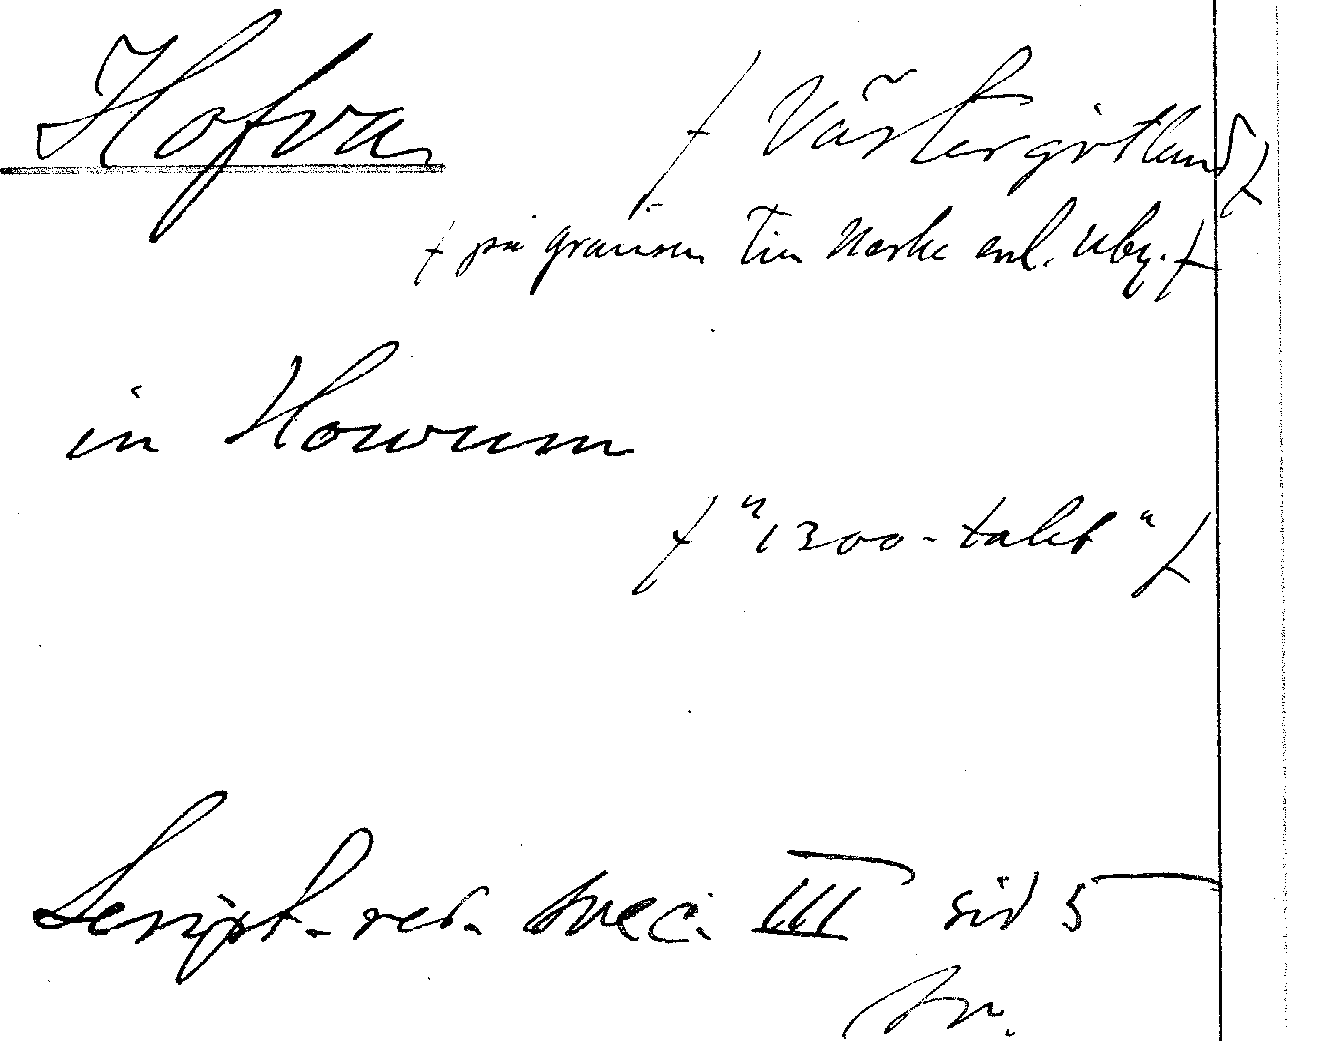 Hofva
[Västergötland]
[på gränsen till Närke enl. Ubg.]
in Howum
["1300-talet"]
Script. rer. svec. III sid 5
tr.